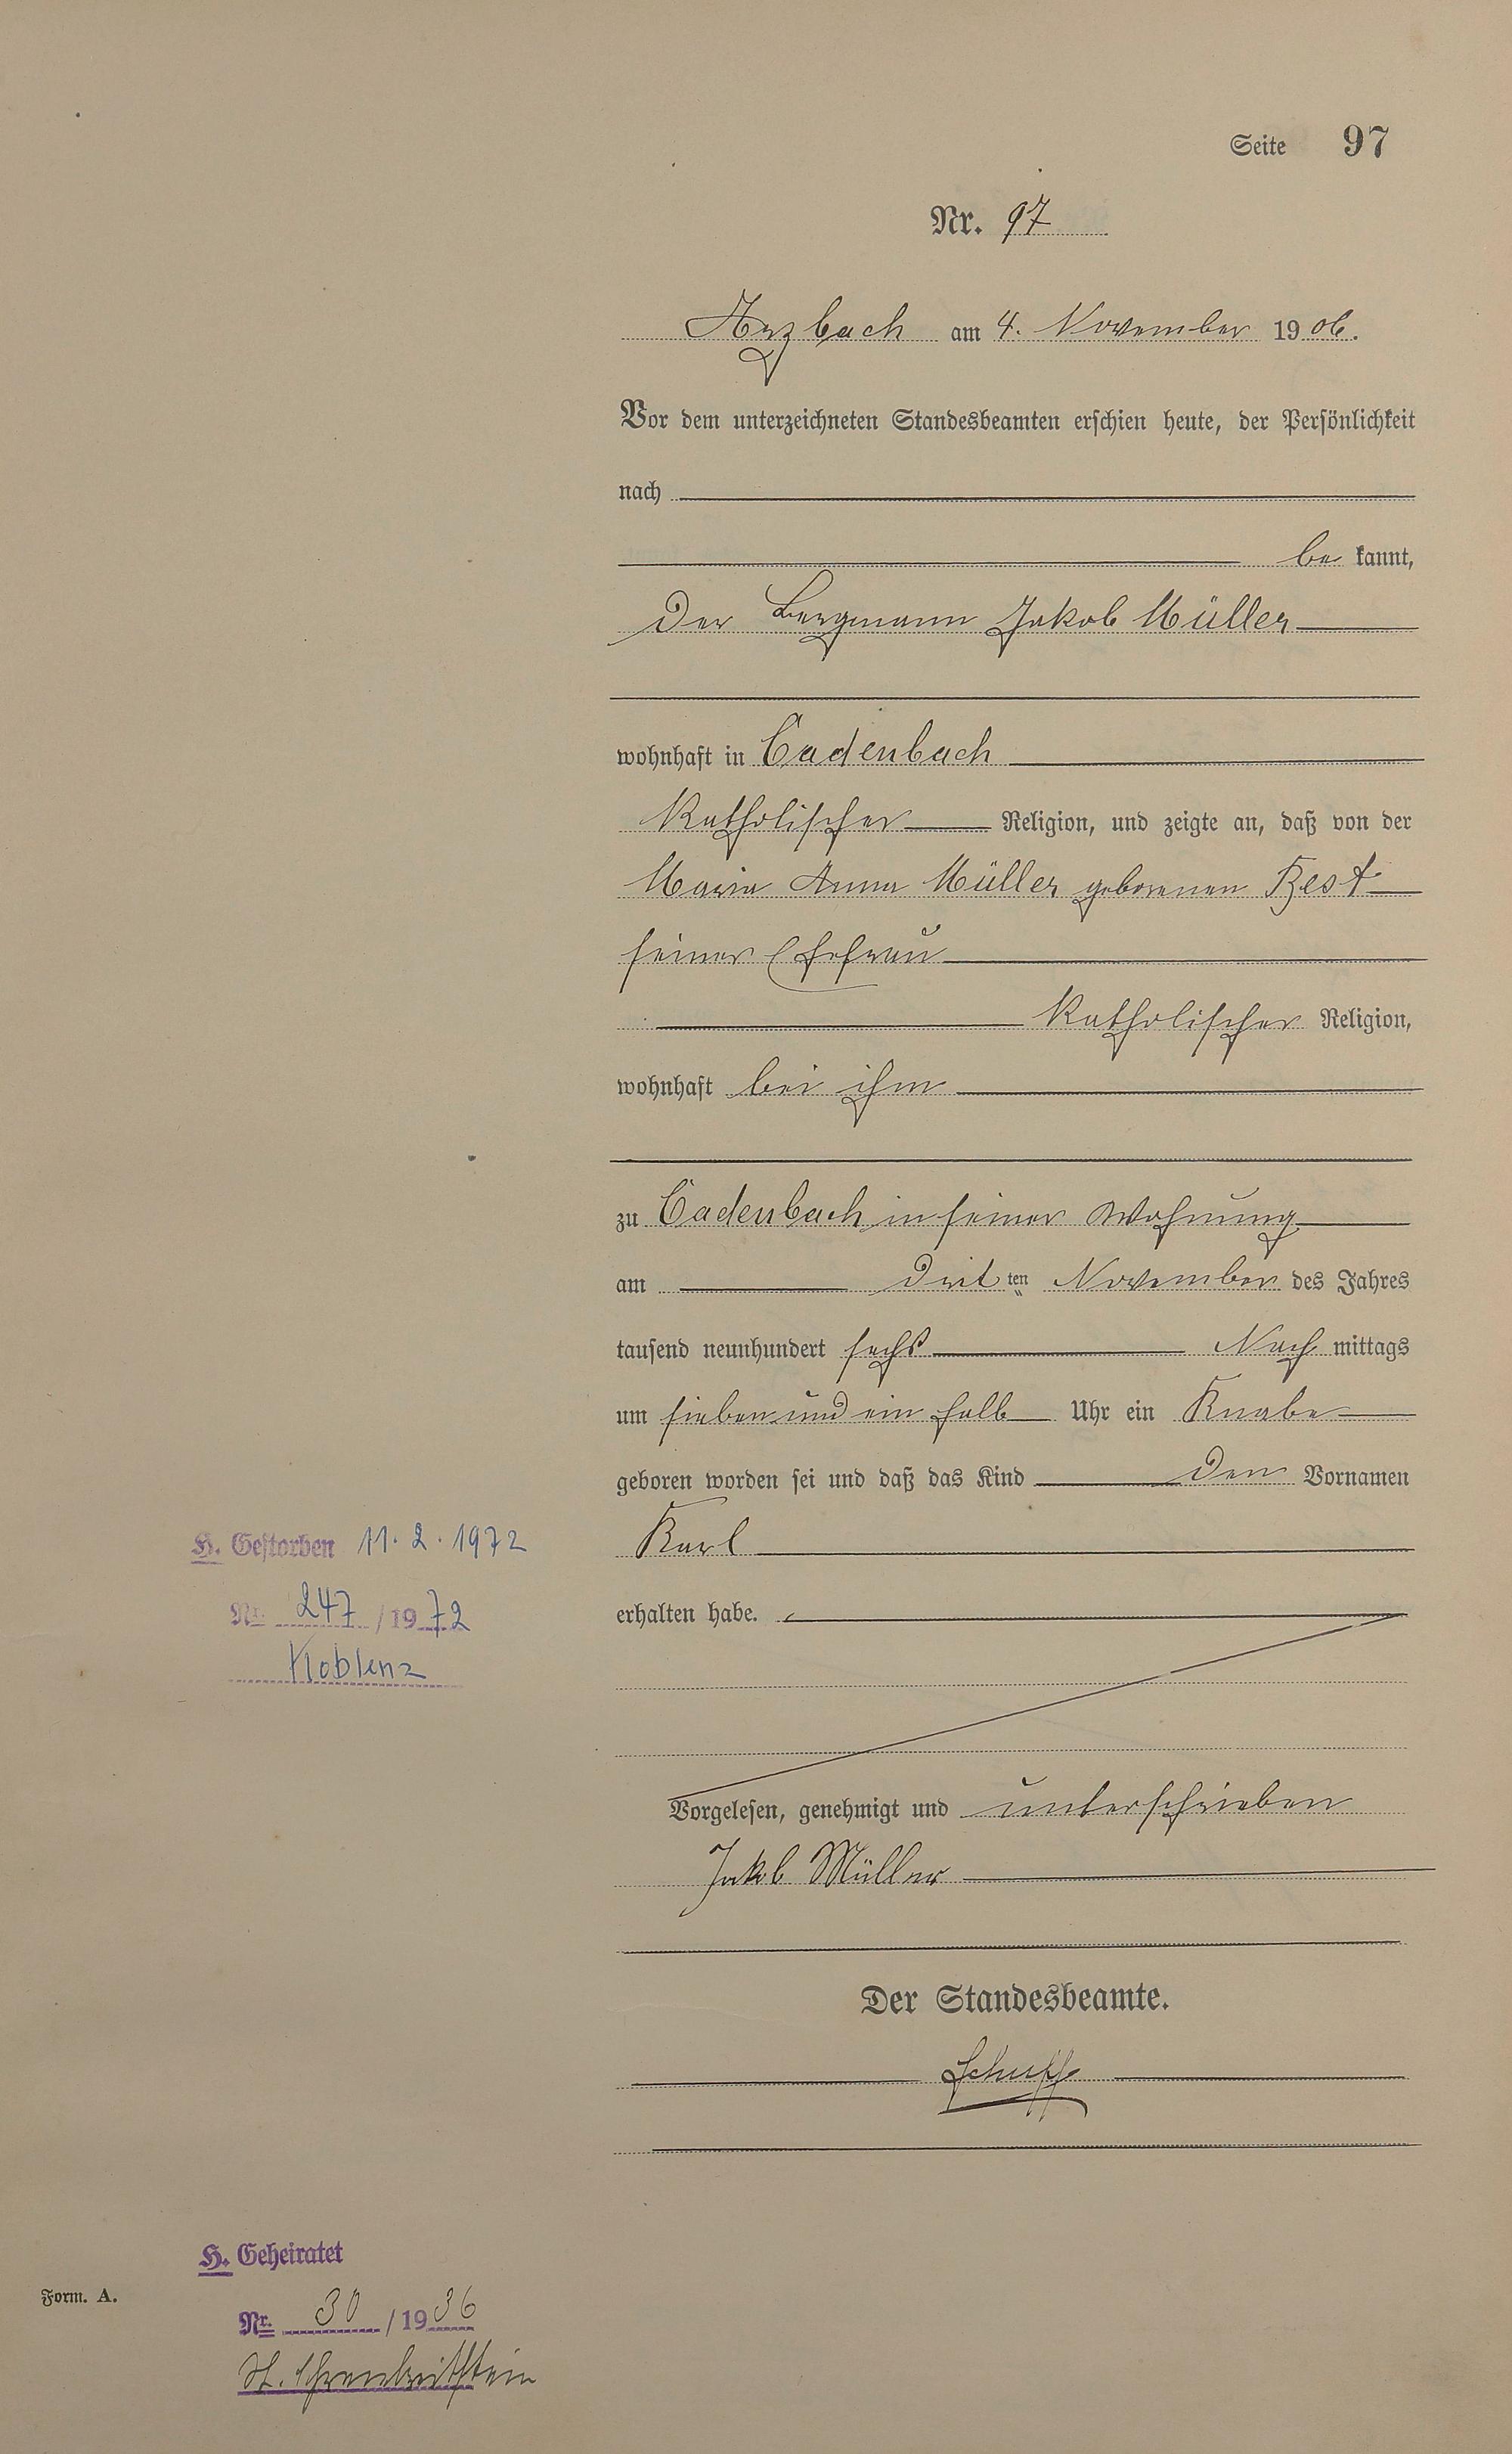 Seite 97
Nr. 97
Arzbach am 4. November 1906.
Vor dem unterzeichneten Standesbeamten erschien heute, der Persönlichkeit
nach
be kannt,
der Bergmann Jakob Müller
wohnhaft in Cadenbach
katholischer Religion, und zeigte an, daß von der
Maria Anna Müller geborenen Best
seiner Ehefrau
katholischer Religion,
wohnhaft bei ihm
zu Cadenbach in seiner Wohnung
am dritten November des Jahres
tausend neunhundert sechs Nach mittags
um sieben und ein halb Uhr ein Knabe
geboren worden sei und daß das Kind den Vornamen
Karl
erhalten habe.
Vorgelesen, genehmigt und unterschrieben
Jakob Müller
Der Standesbeamte.
Schupp
H. Gestorben 11.2.1972
Nr. 247 / 1972
Koblenz
H. Geheiratet
Nr. 30 / 1936
St. Ehrenbreitstein
Form. A.